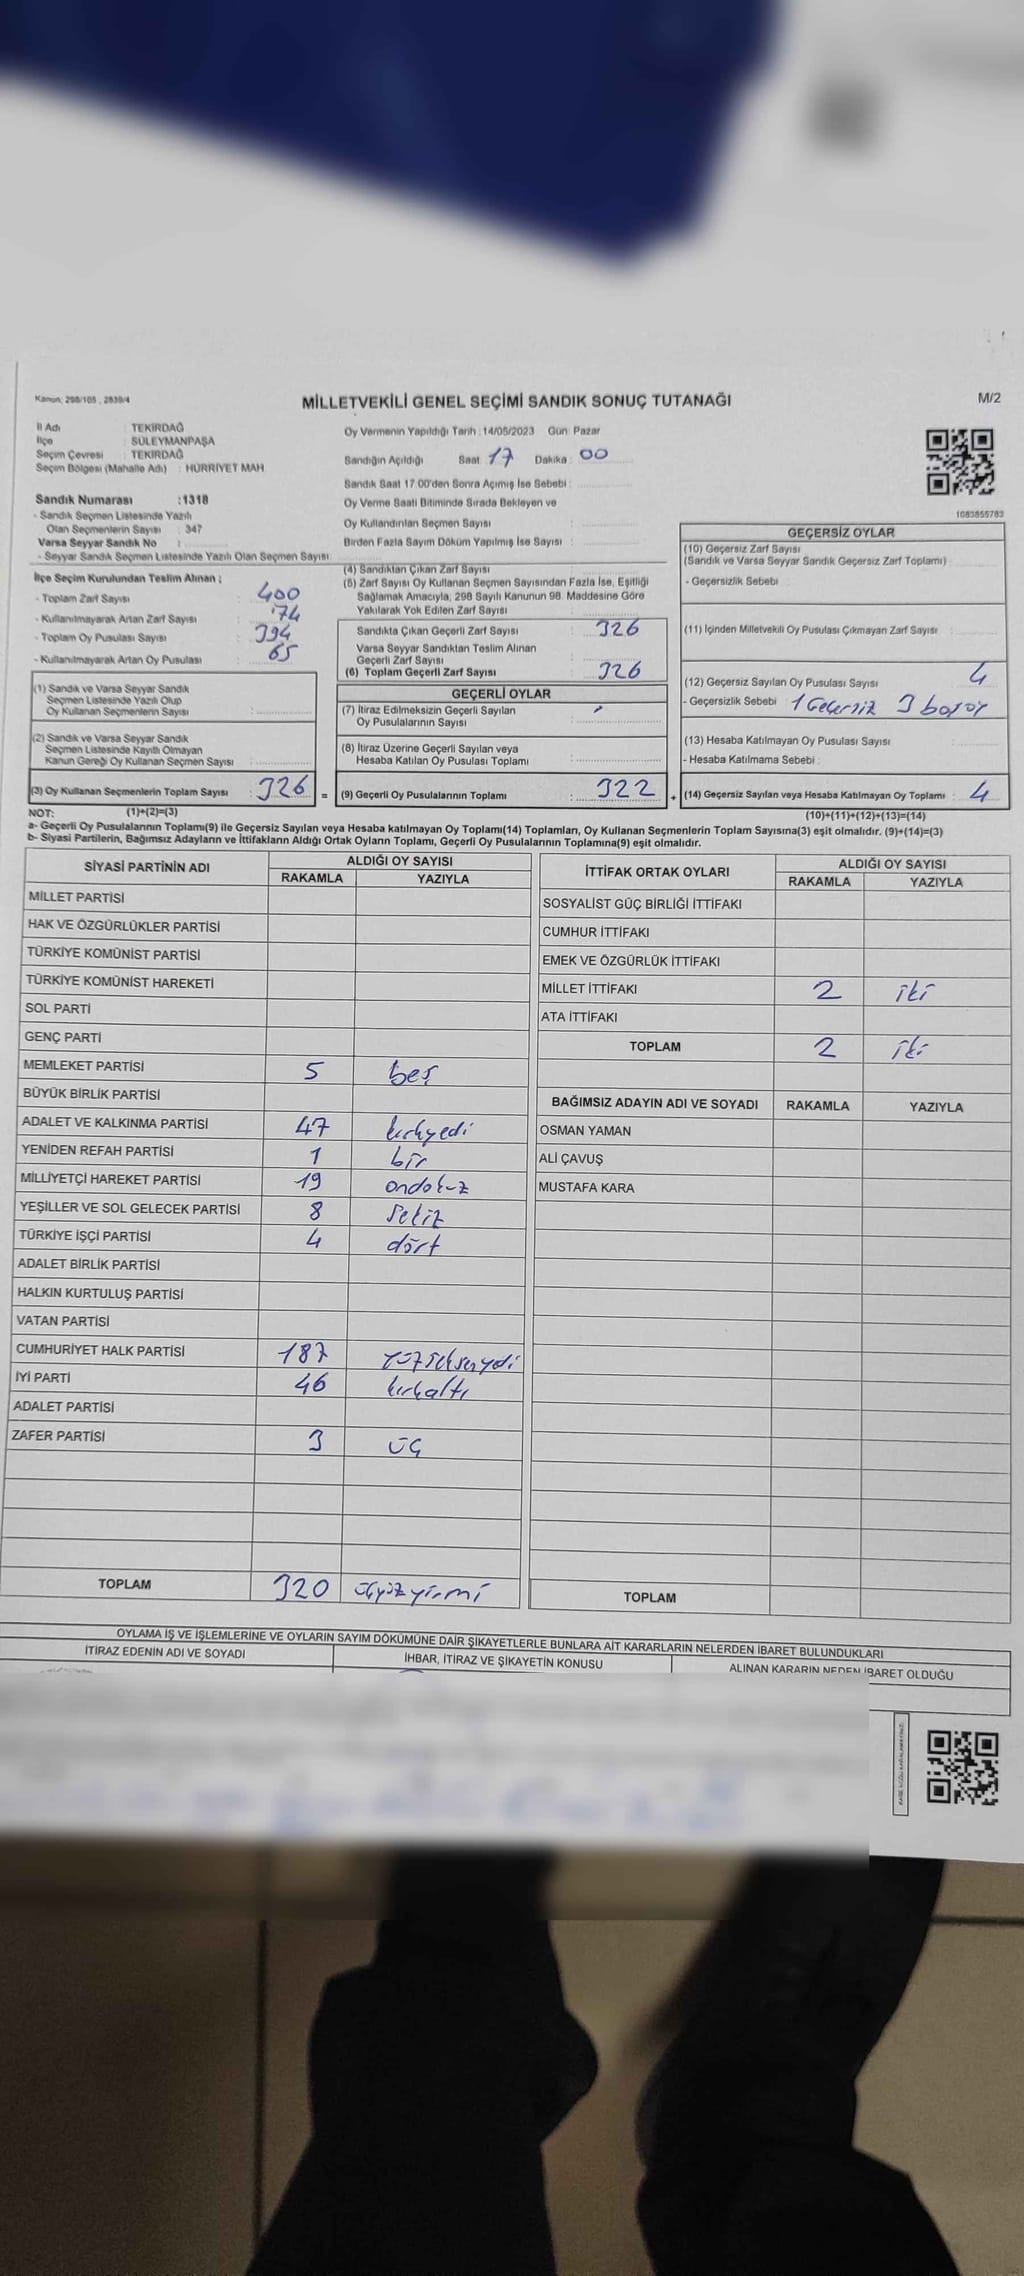 Kanun; 298/105 , 2839/4
MİLLETVEKİLİ GENEL SEÇİMİ SANDIK SONUÇ TUTANAĞI
M/2
İl Adı : TEKİRDAĞ
İlçe : SÜLEYMANPAŞA
Seçim Çevresi : TEKİRDAĞ
Seçim Bölgesi (Mahalle Adı) : HÜRRİYET MAH
Sandık Numarası :1318
- Sandık Seçmen Listesinde Yazılı
Olan Seçmenlerin Sayısı : 347
Varsa Seyyar Sandık No :
- Seyyar Sandık Seçmen Listesinde Yazılı Olan Seçmen Sayısı :
Oy Vermenin Yapıldığı Tarih :14/05/2023 Gün: Pazar
Sandığın Açıldığı Saat : 17 Dakika : 00
Sandık Saat 17:00'den Sonra Açımış İse Sebebi :
Oy Verme Saati Bitiminde Sırada Bekleyen ve
Oy Kullandırılan Seçmen Sayısı :
Birden Fazla Sayım Döküm Yapılmış İse Sayısı :
1083855783
İlçe Seçim Kurulundan Teslim Alınan ;
- Toplam Zarf Sayısı : 400
- Kullanılmayarak Artan Zarf Sayısı : 74
- Toplam Oy Pusulası Sayısı : 394
- Kullanılmayarak Artan Oy Pusulası : 65
(1) Sandık ve Varsa Seyyar Sandık
Seçmen Listesinde Yazılı Olup
Oy Kullanan Seçmenlerin Sayısı :
(2) Sandık ve Varsa Seyyar Sandık
Seçmen Listesinde Kayıtlı Olmayan
Kanun Gereği Oy Kullanan Seçmen Sayısı :
(3) Oy Kullanan Seçmenlerin Toplam Sayısı : 326
(1)+(2)=(3)
(4) Sandıktan Çıkan Zarf Sayısı :
(5) Zarf Sayısı Oy Kullanan Seçmen Sayısından Fazla İse, Eşitliği
Sağlamak Amacıyla; 298 Sayılı Kanunun 98. Maddesine Göre
Yakılarak Yok Edilen Zarf Sayısı :
Sandıkta Çıkan Geçerli Zarf Sayısı : 326
Varsa Seyyar Sandıktan Teslim Alınan
Geçerli Zarf Sayısı :
(6) Toplam Geçerli Zarf Sayısı : 326
GEÇERLİ OYLAR
(7) İtiraz Edilmeksizin Geçerli Sayılan
Oy Pusulalarının Sayısı :
(8) İtiraz Üzerine Geçerli Sayılan veya
Hesaba Katılan Oy Pusulası Toplamı :
= (9) Geçerli Oy Pusulalarının Toplamı : 322 +
GEÇERSİZ OYLAR
(10) Geçersiz Zarf Sayısı
(Sandık ve Varsa Seyyar Sandık Geçersiz Zarf Toplamı) :
- Geçersizlik Sebebi :
(11) İçinden Milletvekili Oy Pusulası Çıkmayan Zarf Sayısı :
(12) Geçersiz Sayılan Oy Pusulası Sayısı : 4
- Geçersizlik Sebebi : 1 Geçersiz 3 boş oy
(13) Hesaba Katılmayan Oy Pusulası Sayısı :
- Hesaba Katılmama Sebebi :
(14) Geçersiz Sayılan veya Hesaba Katılmayan Oy Toplamı : 4
(10)+(11)+(12)+(13)=(14)
NOT:
a- Geçerli Oy Pusulalarının Toplamı(9) ile Geçersiz Sayılan veya Hesaba katılmayan Oy Toplamı(14) Toplamları, Oy Kullanan Seçmenlerin Toplam Sayısına(3) eşit olmalıdır. (9)+(14)=(3)
b- Siyasi Partilerin, Bağımsız Adayların ve İttifakların Aldığı Ortak Oyların Toplamı, Geçerli Oy Pusulalarının Toplamına(9) eşit olmalıdır.
SİYASİ PARTİNİN ADI ALDIĞI OY SAYISI
RAKAMLA YAZIYLA
MİLLET PARTİSİ
HAK VE ÖZGÜRLÜKLER PARTİSİ
TÜRKİYE KOMÜNİST PARTİSİ
TÜRKİYE KOMÜNİST HAREKETİ
SOL PARTİ
GENÇ PARTİ
MEMLEKET PARTİSİ 5 beş
BÜYÜK BİRLİK PARTİSİ
ADALET VE KALKINMA PARTİSİ 47 kırkyedi
YENİDEN REFAH PARTİSİ 1 bir
MİLLİYETÇİ HAREKET PARTİSİ 19 ondokuz
YEŞİLLER VE SOL GELECEK PARTİSİ 8 sekiz
TÜRKİYE İŞÇİ PARTİSİ 4 dört
ADALET BİRLİK PARTİSİ
HALKIN KURTULUŞ PARTİSİ
VATAN PARTİSİ
CUMHURİYET HALK PARTİSİ 187 yüzseksenyedi
İYİ PARTİ 46 kırkaltı
ADALET PARTİSİ
ZAFER PARTİSİ 3 üç
TOPLAM 320 üçyüzyirmi
İTTİFAK ORTAK OYLARI ALDIĞI OY SAYISI
RAKAMLA YAZIYLA
SOSYALİST GÜÇ BİRLİĞİ İTTİFAKI
CUMHUR İTTİFAKI
EMEK VE ÖZGÜRLÜK İTTİFAKI
MİLLET İTTİFAKI 2 iki
ATA İTTİFAKI
TOPLAM 2 iki
BAĞIMSIZ ADAYIN ADI VE SOYADI RAKAMLA YAZIYLA
OSMAN YAMAN
ALİ ÇAVUŞ
MUSTAFA KARA
TOPLAM
OYLAMA İŞ VE İŞLEMLERİNE VE OYLARIN SAYIM DÖKÜMÜNE DAİR ŞİKAYETLERLE BUNLARA AİT KARARLARIN NELERDEN İBARET BULUNDUKLARI
İTİRAZ EDENİN ADI VE SOYADI İHBAR, İTİRAZ VE ŞİKAYETİN KONUSU ALINAN KARARIN NEDEN İBARET OLDUĞU